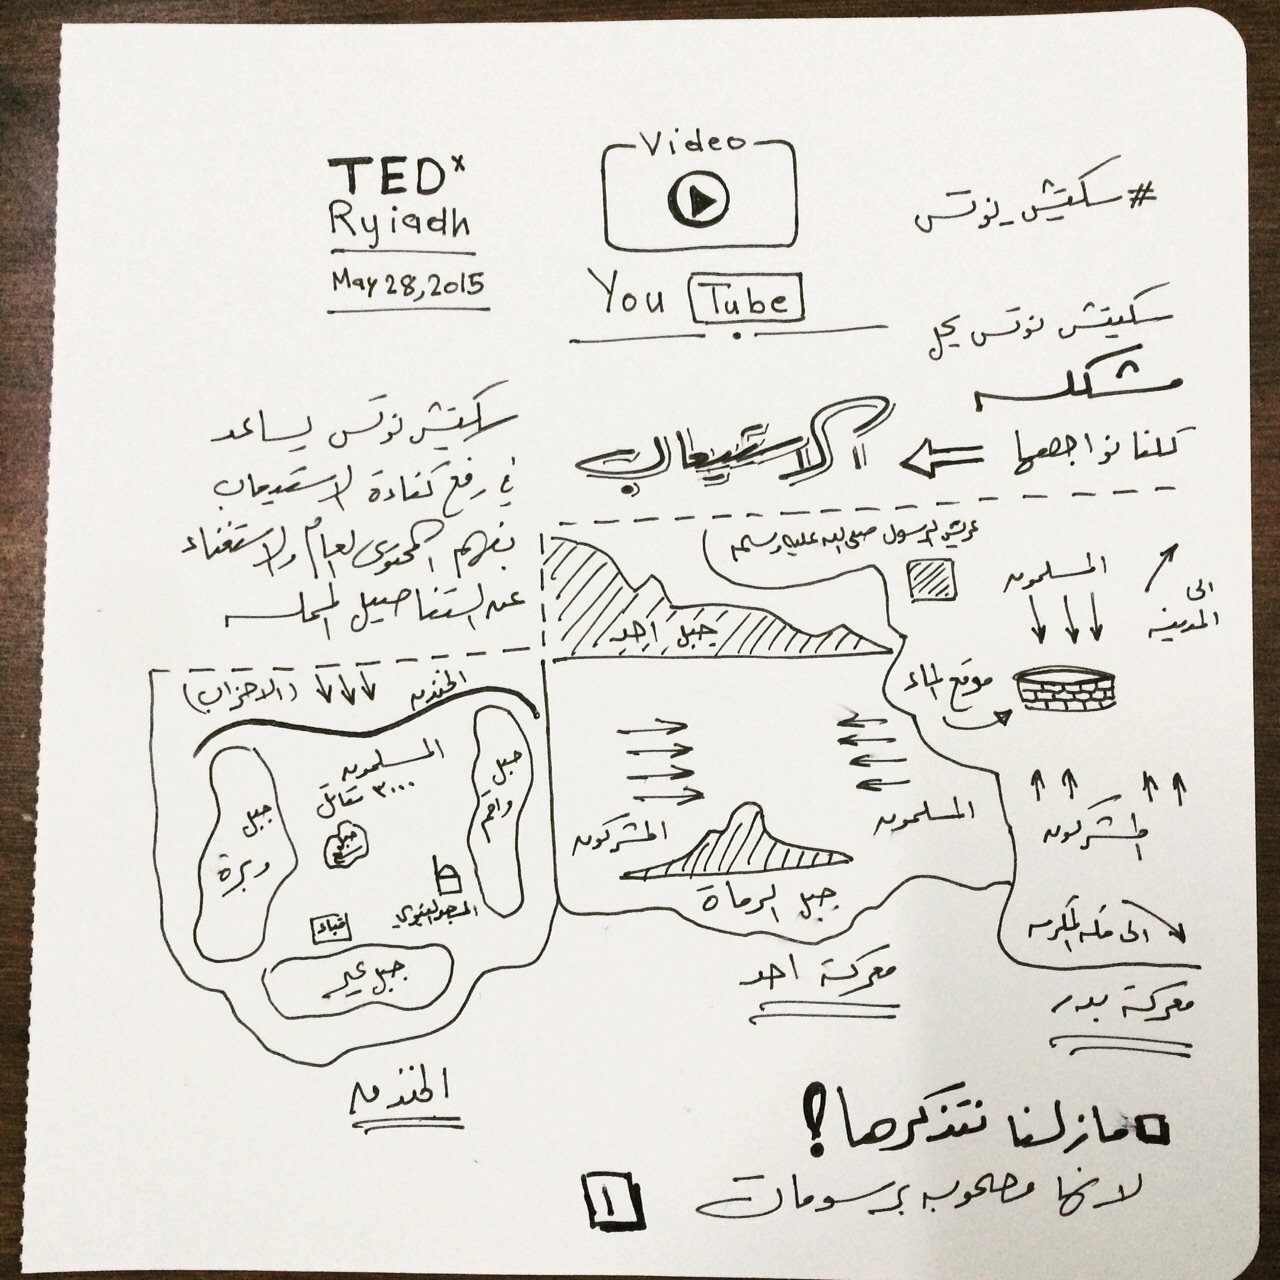 #سكتش_نوتس
Video
You Tube
TEDx
Ryiadh
May 28, 2015
سكيتش نوتس يحل
مشكله
كلنا نواجهها
الاستيعاب
سكتش نوتس يساعد
في رفع كفاءة الاستيعاب
بفهم المحتوى العام والاستغناء
عن التفاصيل المملة
عريش الرسول صلى الله عليه وسلم
المسلمون
الى المدينه
موقع الماء
المشركون
الى مكه المكرمه
معركة بدر
جبل احد
المسلمون
المشركون
جبل الرماة
معركة احد
الخندق
(الاحزاب)
المسلمون
٣٠٠٠ مقاتل
جبل واقم
جبل وبرة
جبل سلع
المسجد النبوي
قباء
جبل عير
الخندق
مازلنا نتذكرها؟
لانها مصحوبه برسومات
١